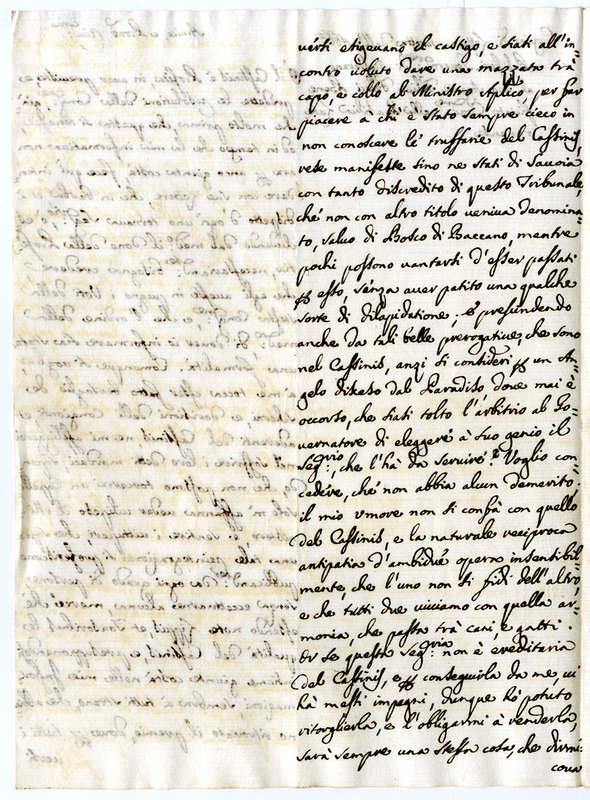 verti esigevano il castigo, e siasi all'in=
contro voluto dare una mazzata trà
capo, e collo al Ministro Aplico, per far
piacere à chi è stato sempre cieco in
non conoscere le truffarie del Cassinis,
rese manifeste sino ne stati di Savoia
con tanto discredito di questo Tribunale,
chè non con altro titolo veniva denomina=
to, salvo di Bosco di Baccano, mentre
pochi possono vantarsi d'esser passati
per esso, senza aver patito una qualche
sorte di dilapidatione; e prescindendo
anche da tali belle prerogative, che sono
nel Cassinis, anzi si consideri per un An=
gelo disceso dal Paradiso, dove mai è
occorso, che siasi tolto l'arbitrio al Go=
vernatore di eleggere à suo genio il
Seg:rio, che l'hà da servire? Voglio con=
cedere, chè non abbia alcun demerito;
il mio umore non si confà con quello
del Cassinis, e la naturale reciproca
antipatia d'ambidué opera insensibil=
mente, che l'uno non si fidi dell'altro,
e che tutti due viviamo con quella ar=
monia, che passa trà cani, e gatti.
Or se questa seg:ria non è ereditaria
del Cassinis, e per conseguirla da me, vi
hà messi impegni, dunque hò potuto
ritorglierla, e l'obligarmi à renderla,
sarà sempre una stessa cosa, che
cova